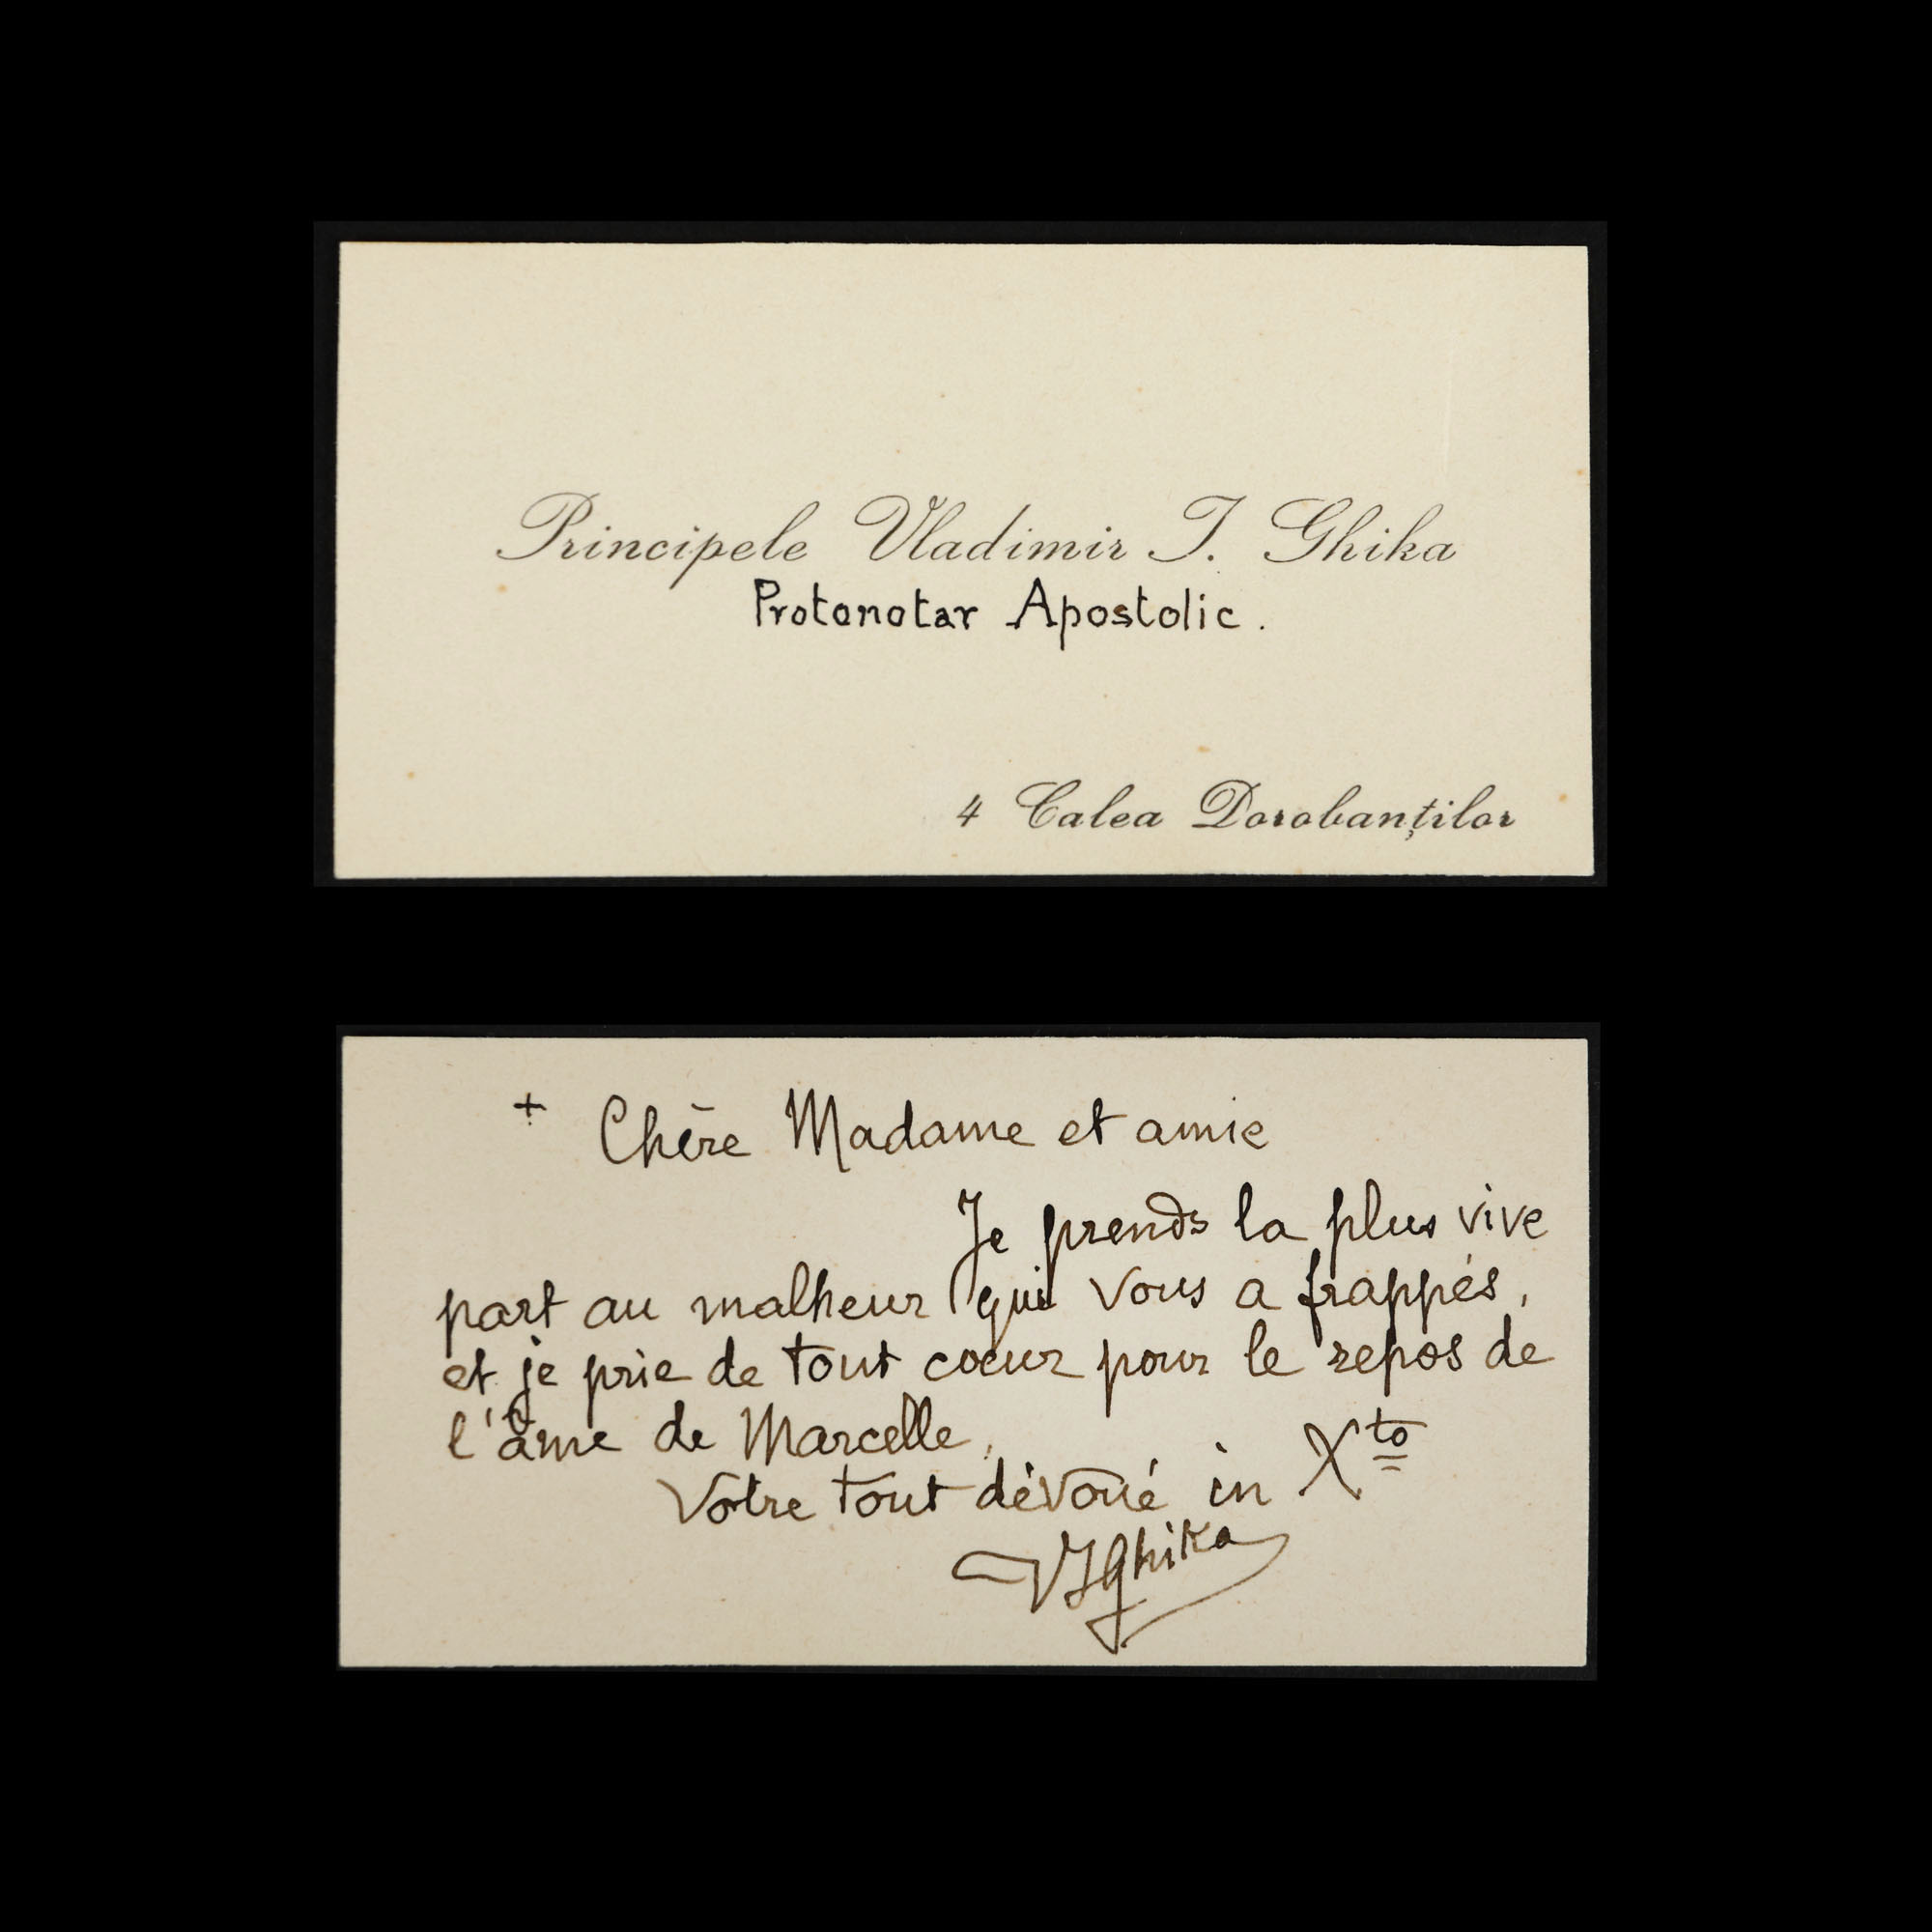 Principele Vladimir I. Ghika
Protonotar Apostolic.
4 Calea Dorobanților
+ Chère Madame et amie
Je prends la plus vive
part au malheur qui vous a frappés,
et je prie de tout coeur pour le repos de
l'âme de Marcelle,
Votre tout dévoué in Xto
VIGhika